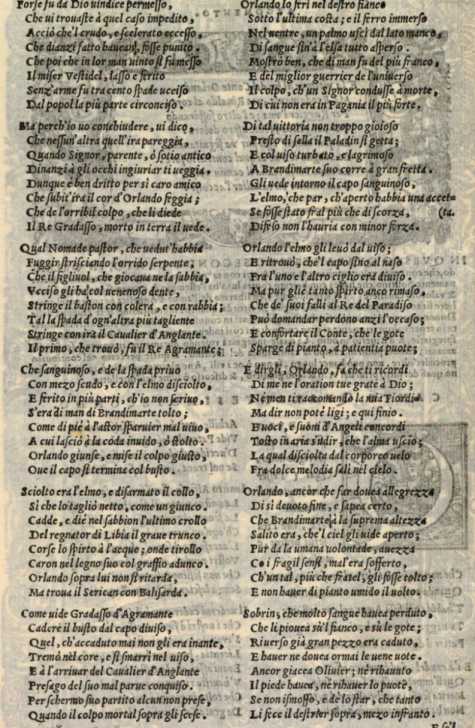 Forse fu da Dio uindice permesso,
Che ui trouaste à quel caso impedito,
Acciò che'l crudo, e scelerato eccesso,
Che dianzi fatto haueán, fosse punito.
Che poi che in lor man uinto si fu messo
Il miser Vestidel, lasso e ferito
Senz'arme fu tra cento spade ucciso
Dal popol la più parte circonciso.
Ma perch'io uo conchiudere, ui dico,
Che nessun'altra quell'ira pareggia,
Quando Signor, parente, ò sotio antico
Dinanzi à gli occhi ingiuriar ti ueggia.
Dunque è ben dritto per sì caro amico
Che subit'ira il cor d'Orlando feggia;
Che de l'orribil colpo, che li diede
Il Re Gradasso, morto in terra il uede.
Qual Nomade pastor, che uedut'habbia
Fuggir strisciando l'orrido serpente,
Che il figliuol, che giocaua ne la sabbia,
Vcciso gli ha col uenenoso dente,
Stringe il baston con colera, e con rabbia;
Tal la spada d'ogn'altra più tagliente
Stringe con ira il Caualier d'Anglante.
Il primo, che trouò, fu il Re Agramante;
Che sanguinoso, e de la spada priuo
Con mezo scudo, e con l'elmo disciolto,
E ferito in più parti, ch'io non scriuo,
S'era di man di Brandimarte tolto;
Come di piè à l'astor sparuier mal uiuo,
A cui lasciò à la coda inuido, ò stolto.
Orlando giunse, e mise il colpo giusto,
Oue il capo si termina col busto.
Sciolto era l'elmo, e disarmato il collo,
Sì che lo tagliò netto, come un giunco.
Cadde, e diè nel sabbion l'ultimo crollo
Del regnator di Libia il graue trunco.
Corse lo spirto à l'acque; onde tirollo
Caron nel legno suo col graffio adunco.
Orlando sopra lui non si ritarda,
Ma troua il Serican con Balisarda.
Come uide Gradasso d'Agramante
Cadere il busto dal capo diuiso,
Quel, ch'accaduto mai non gli era inante,
Tremò nel core, e si smarrì nel uiso,
E à l'arriuar del Caualier d'Anglante
Presago del suo mal parue conquiso.
Per schermo suo partito alcun non prese,
Quando il colpo mortal sopra gli scese.
Orlando lo ferì nel destro fianco
Sotto l'ultima costa; e il ferro immerso
Nel uentre, un palmo uscì dal lato manco,
Di sangue sin à l'elsa tutto asperso.
Mostrò ben, che di man fu del più franco,
E del miglior guerrier de l'uniuerso
Il colpo, ch'un Signor condusse à morte,
Di cui non era in Pagania il più forte.
Di tal uittoria non troppo gioioso
Presto di sella il Paladin si getta;
E col uiso turbato, e lagrimoso
A Brandimarte suo corre à gran fretta.
Gli uede intorno il capo sanguinoso,
L'elmo, che par, ch'aperto habbia una accet=
Se fosse stato fral più che di scorza, (ta.
Difeso non l'hauria con minor forza.
Orlando l'elmo gli leuò dal uiso;
E ritrouò, che'l capo sino al naso
Fra l'uno e l'altro ciglio era diuiso.
Ma pur gli è tanto spirto anco rimaso,
Che de' suoi falli al Re del Paradiso
Può domandar perdono anzi l'occaso;
E confortare il Conte, che le gote
Sparge di pianto, à patientia puote;
E dirgli, Orlando, fa che ti ricordi
Di me ne l'oration tue grate à Dio;
Nè men ti raccomando la mia Fiordi=
Ma dir non potè ligi; e qui finio.
E uoci, e suoni d'Angeli concordi
Tosto in aria s'udir, che l'alma uscìo;
La qual disciolta dal corporeo uelo
Fra dolce melodia salì nel cielo.
Orlando, ancor che far douea allegrezza
Di sì deuoto fine, e sapea certo,
Che Brandimarte à la suprema altezza
Salito era, che'l ciel gli uide aperto;
Pur da la umana volontade, auezza
Co i fragil sensi, mal'era sofferto,
Ch'un tal, più che fratel, gli fosse tolto;
E non hauer di pianto umido il uolto.
Sobrin, che molto sangue hauea perduto,
Che li piouea sù'l fianco, e sù le gote;
Riuerso già gran pezzo era caduto,
E hauer ne douea ormai le uene uote.
Ancor giacea Oliuier; nè rihauuto
Il piede hauea, nè rihauer lo puote,
Se non ismosso, e de lo star, che tanto
Li fece il destrier sopra, mezo infranto.